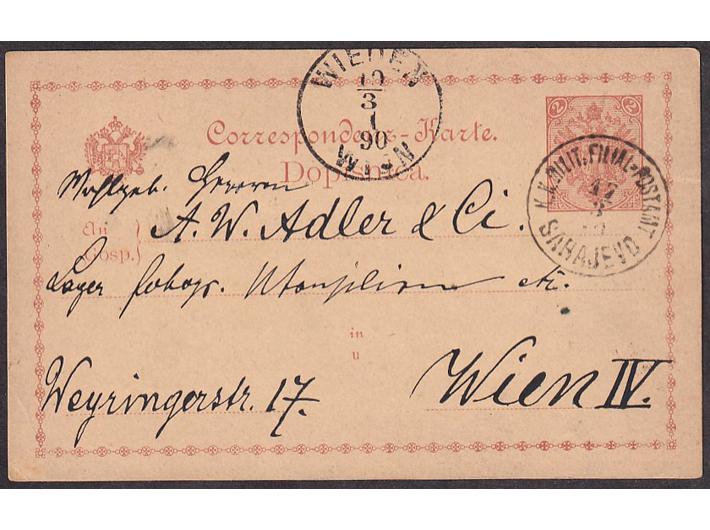 WIEDEN
10
3
1
90
WIEN
2 2
Correspondenz-Karte.
Dopisnica.
K.K. MILIT. FILIAL-POSTAMT
SARAJEVO
Wohlgeb. Herrren
An
Gosp.
A. W. Adler & Ci.
Lager fotogr. Utensilien etc.
in
u
Weyringerstr. 17.
Wien IV.